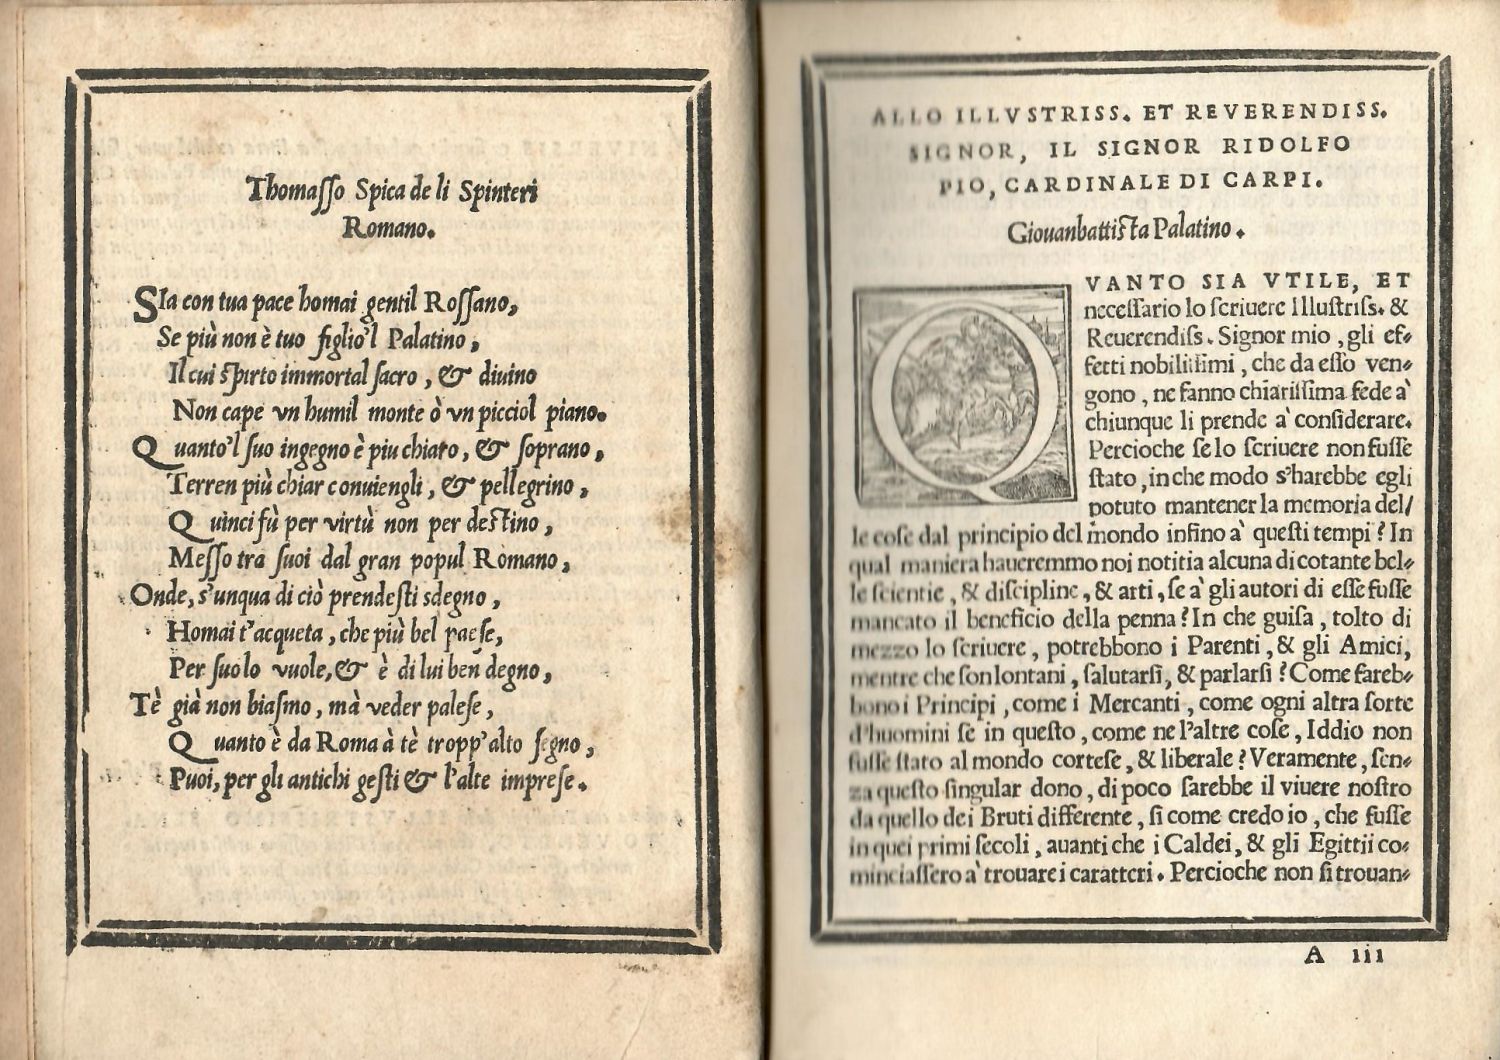 Thomasso Spica de li Spinteri
Romano.
SIa con tua pace homai gentil Rossano,
Se più non è tuo figlio'l Palatino,
Il cui spirto immortal sacro, & diuino
Non cape vn humil monte ò vn picciol piano.
Quanto'l suo ingegno è piu chiaro, & soprano,
Terren più chiar conuiengli, & pellegrino,
Quinci fù per virtù non per destino,
Messo tra suoi dal gran popul Romano,
Onde, s'unqua di ciò prendesti sdegno,
Homai t'acqueta, che più bel paese,
Per suo lo vuole, & è di lui ben degno,
Tè già non biasmo, mà veder palese,
Quanto è da Roma à tè tropp'alto segno,
Puoi, per gli antichi gesti & l'alte imprese.
ALLO ILLVSTRISS. ET REVERENDISS.
SIGNOR, IL SIGNOR RIDOLFO
PIO, CARDINALE DI CARPI.
Giouanbattista Palatino.
QVANTO SIA VTILE, ET
necessario lo scriuere Illustriss. &
Reuerendiss. Signor mio, gli ef-
fetti nobilissimi, che da esso ven-
gono, ne fanno chiarissima fede a'
chiunque li prende a' considerare.
Percioche se lo scriuere non fusse
stato, in che modo s'harebbe egli
potuto mantener la memoria del/
le cose dal principio del mondo infino a' questi tempi? In
qual maniera haueremmo noi notitia alcuna di cotante bel-
le scientie, & discipline, & arti, se a' gli autori di esse fusse
mancato il beneficio della penna? In che guisa, tolto di
mezzo lo scriuere, potrebbono i Parenti, & gli Amici,
mentre che son lontani, salutarsi, & parlarsi? Come fareb-
bono i Principi, come i Mercanti, come ogni altra sorte
d'huomini se in questo, come ne l'altre cose, Iddio non
fusse stato al mondo cortese, & liberale? Veramente, sen-
za questo singular dono, di poco sarebbe il viuere nostro
da quello dei Bruti differente, si come credo io, che fusse
in quei primi secoli, auanti che i Caldei, & gli Egittii co-
minciassero a' trouare i caratteri. Percioche non si trouan-
A iii